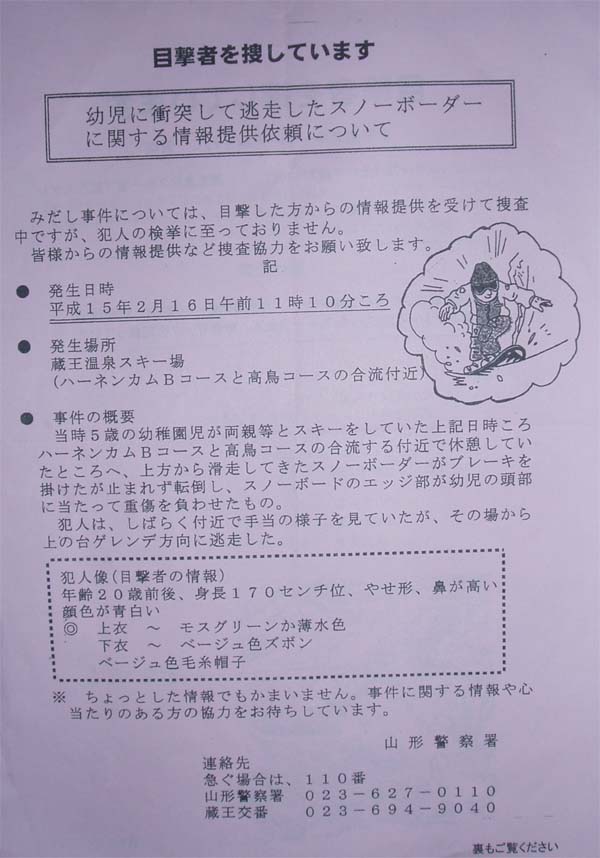 目撃者を捜しています
幼児に衝突して逃走したスノーボーダー
に関する情報提供依頼について
みだし事件については、目撃した方からの情報提供を受けて捜査
中ですが、犯人の検挙に至っておりません。
皆様からの情報提供など捜査協力をお願い致します。
記
● 発生日時
平成15年2月16日午前11時10分ころ
● 発生場所
蔵王温泉スキー場
(ハーネンカムBコースと高鳥コースの合流付近)
● 事件の概要
当時5歳の幼稚園児が両親等とスキーをしていた上記日時ころ
ハーネンカムBコースと高鳥コースの合流する付近で休憩してい
たところへ、上方から滑走してきたスノーボーダーがブレーキを
掛けたが止まれず転倒し、スノーボードのエッジ部が幼児の頭部
に当たって重傷を負わせたもの。
犯人は、しばらく付近で手当の様子を見ていたが、その場から
上の台ゲレンデ方向に逃走した。
犯人像(目撃者の情報)
年齢20歳前後、身長170センチ位、やせ形、鼻が高い
顔色が青白い
◎ 上衣 ~ モスグリーンか薄水色
下衣 ~ ベージュ色ズボン
ベージュ色毛糸帽子
※ ちょっとした情報でもかまいません。事件に関する情報や心
当たりのある方の協力をお待ちしています。
山形警察署
連絡先
急ぐ場合は、110番
山形警察署 023-627-0110
蔵王交番 023-694-9040
裏もご覧ください